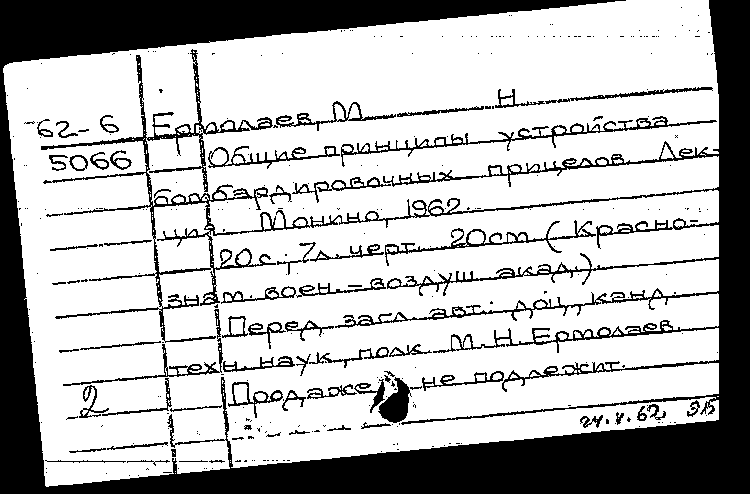 62-6 Ермолаев, М Н
5066 Общие принципы устройства
бомбардировочных прицелов. Лек-
ция. Монино, 1962.
20с.; 7л. черт. 20см (Красно-
знам. воен.-воздуш. акад.).
Перед загл. авт.: доц., канд.
техн. наук, полк М.Н.Ермолаев.
Продаже не подлежит.
2